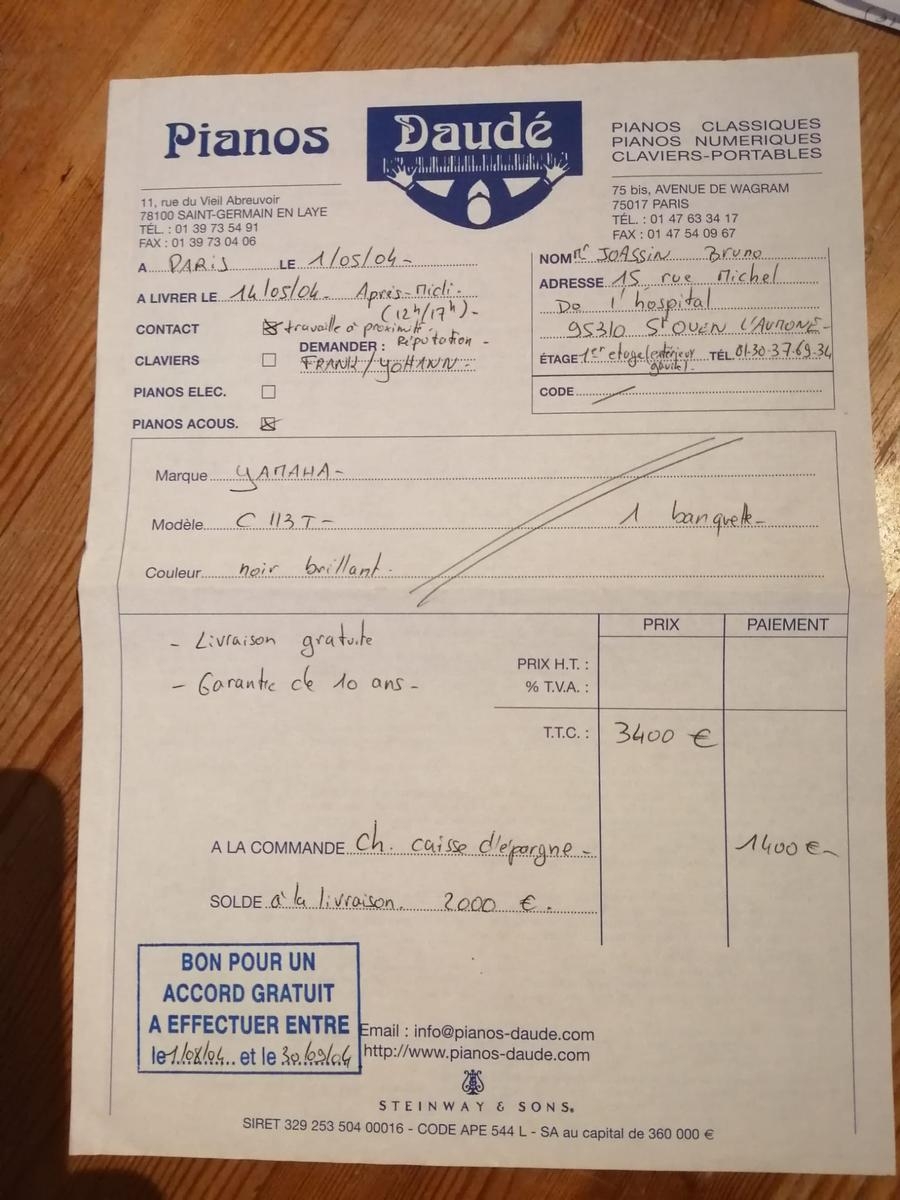 Pianos Daudé
PIANOS CLASSIQUES
PIANOS NUMERIQUES
CLAVIERS-PORTABLES
11, rue du Vieil Abreuvoir
78100 SAINT-GERMAIN EN LAYE
TÉL. : 01 39 73 54 91
FAX : 01 39 73 04 06
75 bis, AVENUE DE WAGRAM
75017 PARIS
TÉL. : 01 47 63 34 17
FAX : 01 47 54 09 67
A PARIS LE 1/05/04-
A LIVRER LE 14/05/04- Après-Midi.
(12h/17h)-
CONTACT travaille à proximité.
DEMANDER : Réputation -
FRANK / YOHANN-
CLAVIERS
PIANOS ELEC.
PIANOS ACOUS.
NOM Mr JOASSIN Bruno
ADRESSE 15, rue Michel
De l'hospital
95310 St OUEN L'AUMONE-
ÉTAGE 1er etage (extérieur TÉL. 01-30-37-69-34
CODE
Marque YAMAHA-
Modèle C 113 T- 1 banquette-
Couleur noir brillant.
PRIX PAIEMENT
- Livraison gratuite
- Garantie de 10 ans-
PRIX H.T. :
% T.V.A. :
T.T.C. : 3400 €
A LA COMMANDE Ch. caisse d'épargne- 1400 €-
SOLDE à la livraison. 2000 €.
BON POUR UN
ACCORD GRATUIT
A EFFECTUER ENTRE
le 1/08/04 et le 30/09/04
Email : info@pianos-daude.com
http://www.pianos-daude.com
STEINWAY & SONS.
SIRET 329 253 504 00016 - CODE APE 544 L - SA au capital de 360 000 €